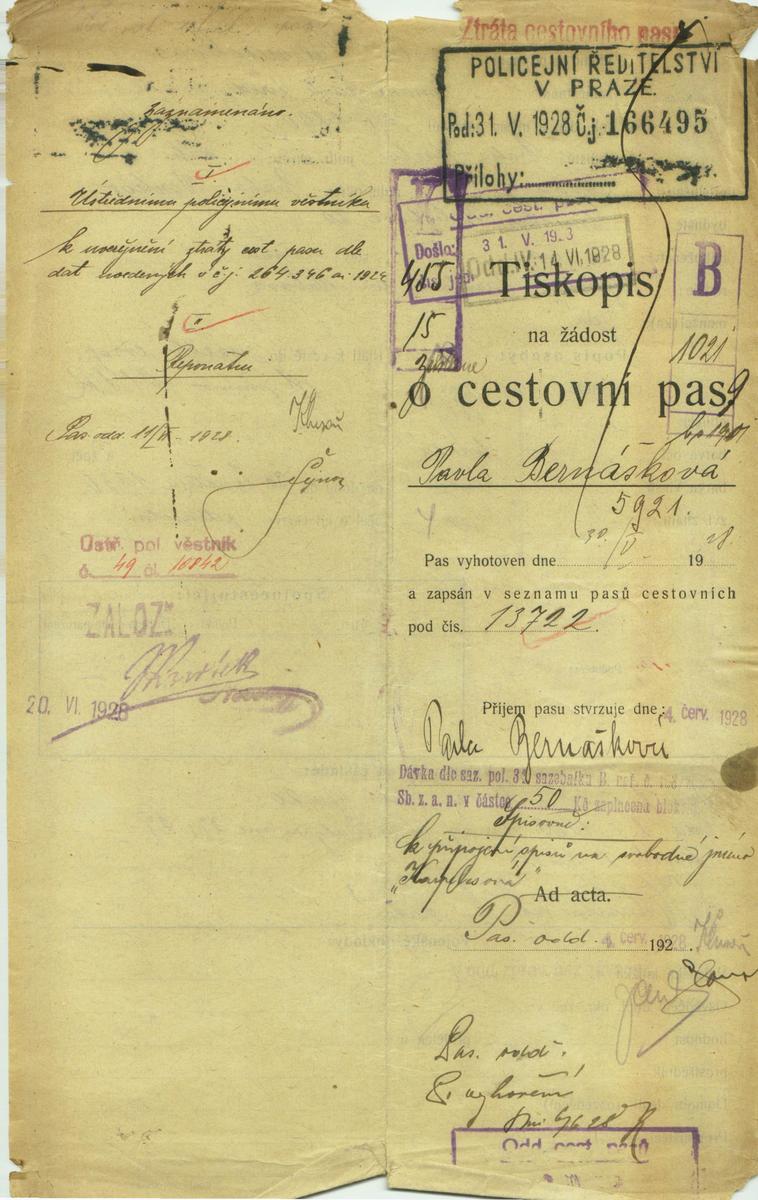 Zaznamenáno.
I.
Ústřednímu policejnímu věstníku
k uveřejnění ztráty cest. pasu dle
dat uvedených v č.j. 264.346 ai 1924
II.
Reponatur
Pas. odd. 11/VI - 1928.
Ústř. pol věstník
č. 49 čl. 10842
ZALOŽ
20. VI. 1928
Ztráta cestovního pasu
POLICEJNÍ ŘEDITELSTVÍ
V PRAZE.
Pod: 31. V. 1928 Č.j. 166495
Přílohy:
Odd. cest. p
Došlo: 31. V. 192
14 VI. 1928
Tiskopis
B
15
na žádost
1021
o cestovní pas
Pavla Bernášková
5921.
Pas vyhotoven dne 30/V 1928
a zapsán v seznamu pasů cestovních
pod čís. 13722.
Příjem pasu stvrzuje dne: 4. červ. 1928
Pavla Bernášková
Dávka dle saz. pol. 3 sazebníka B. nař. č.
Sb. z. a n. v částce 50 Kč zaplacena
Spisovně:
k připojení spisů na svobodné jméno
Ad acta.
Pas. odd. 4. červ. 1928
Pas. odd.
vyhovění
4/6 28
Odd. cest. pasů